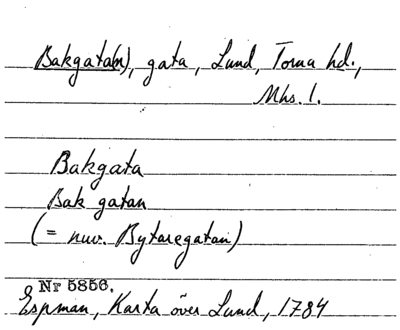 Bakgata(n), gata, Lund, Torna hd.,
Mhs. l.
Bakgata
Bak gatan
(= nuv. Bytaregatan)
Nr 5856.
Espman, Karta över Lund, 1784